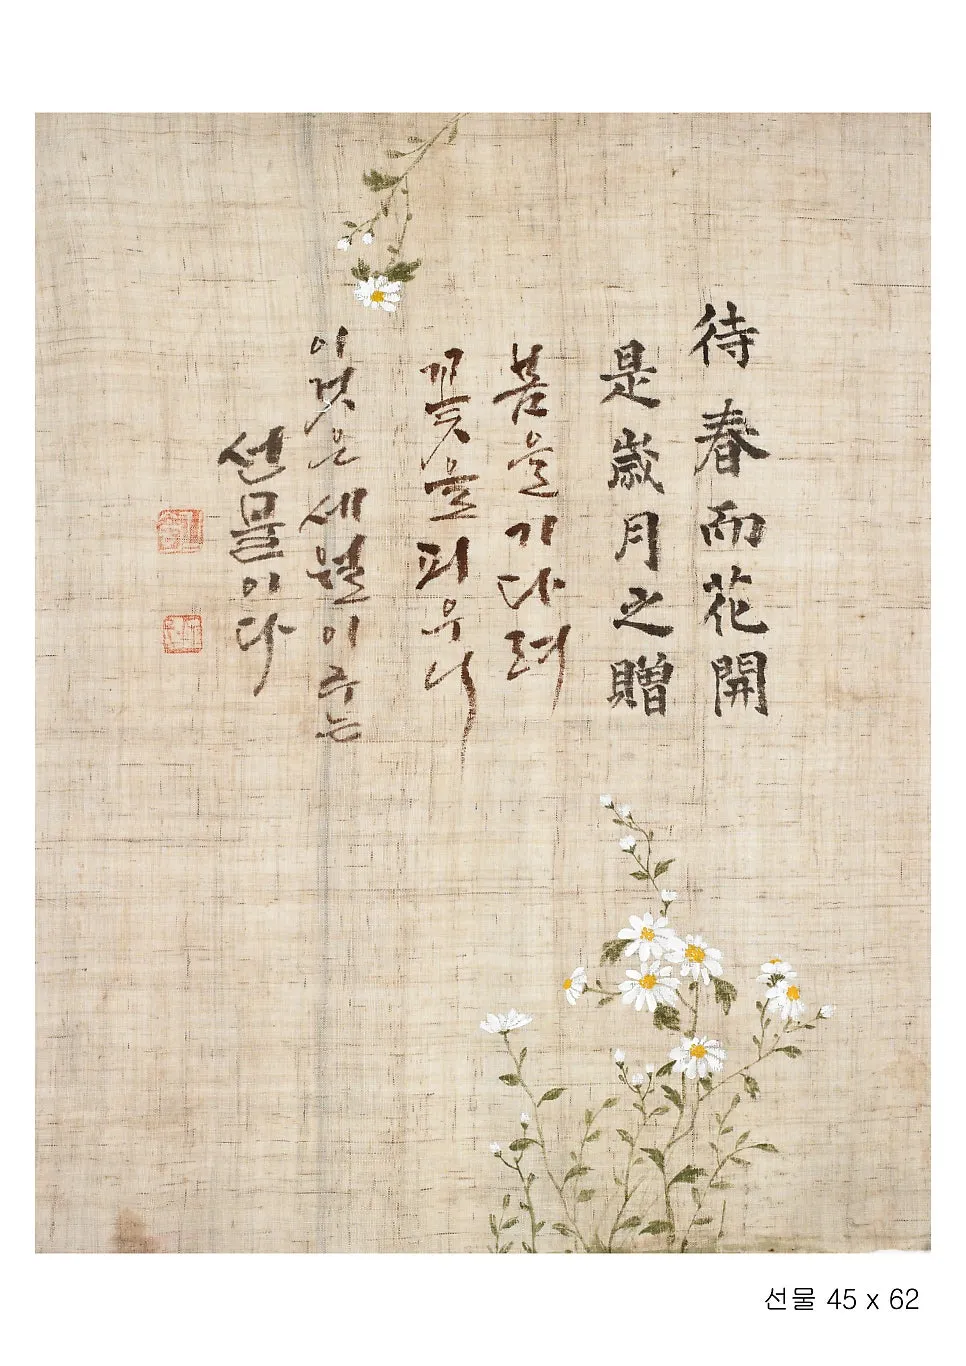 待春而花開
是歲月之贈
봄을 기다려
꽃을 피우니
이것은 세월이 주는
선물이다
선물 45 x 62